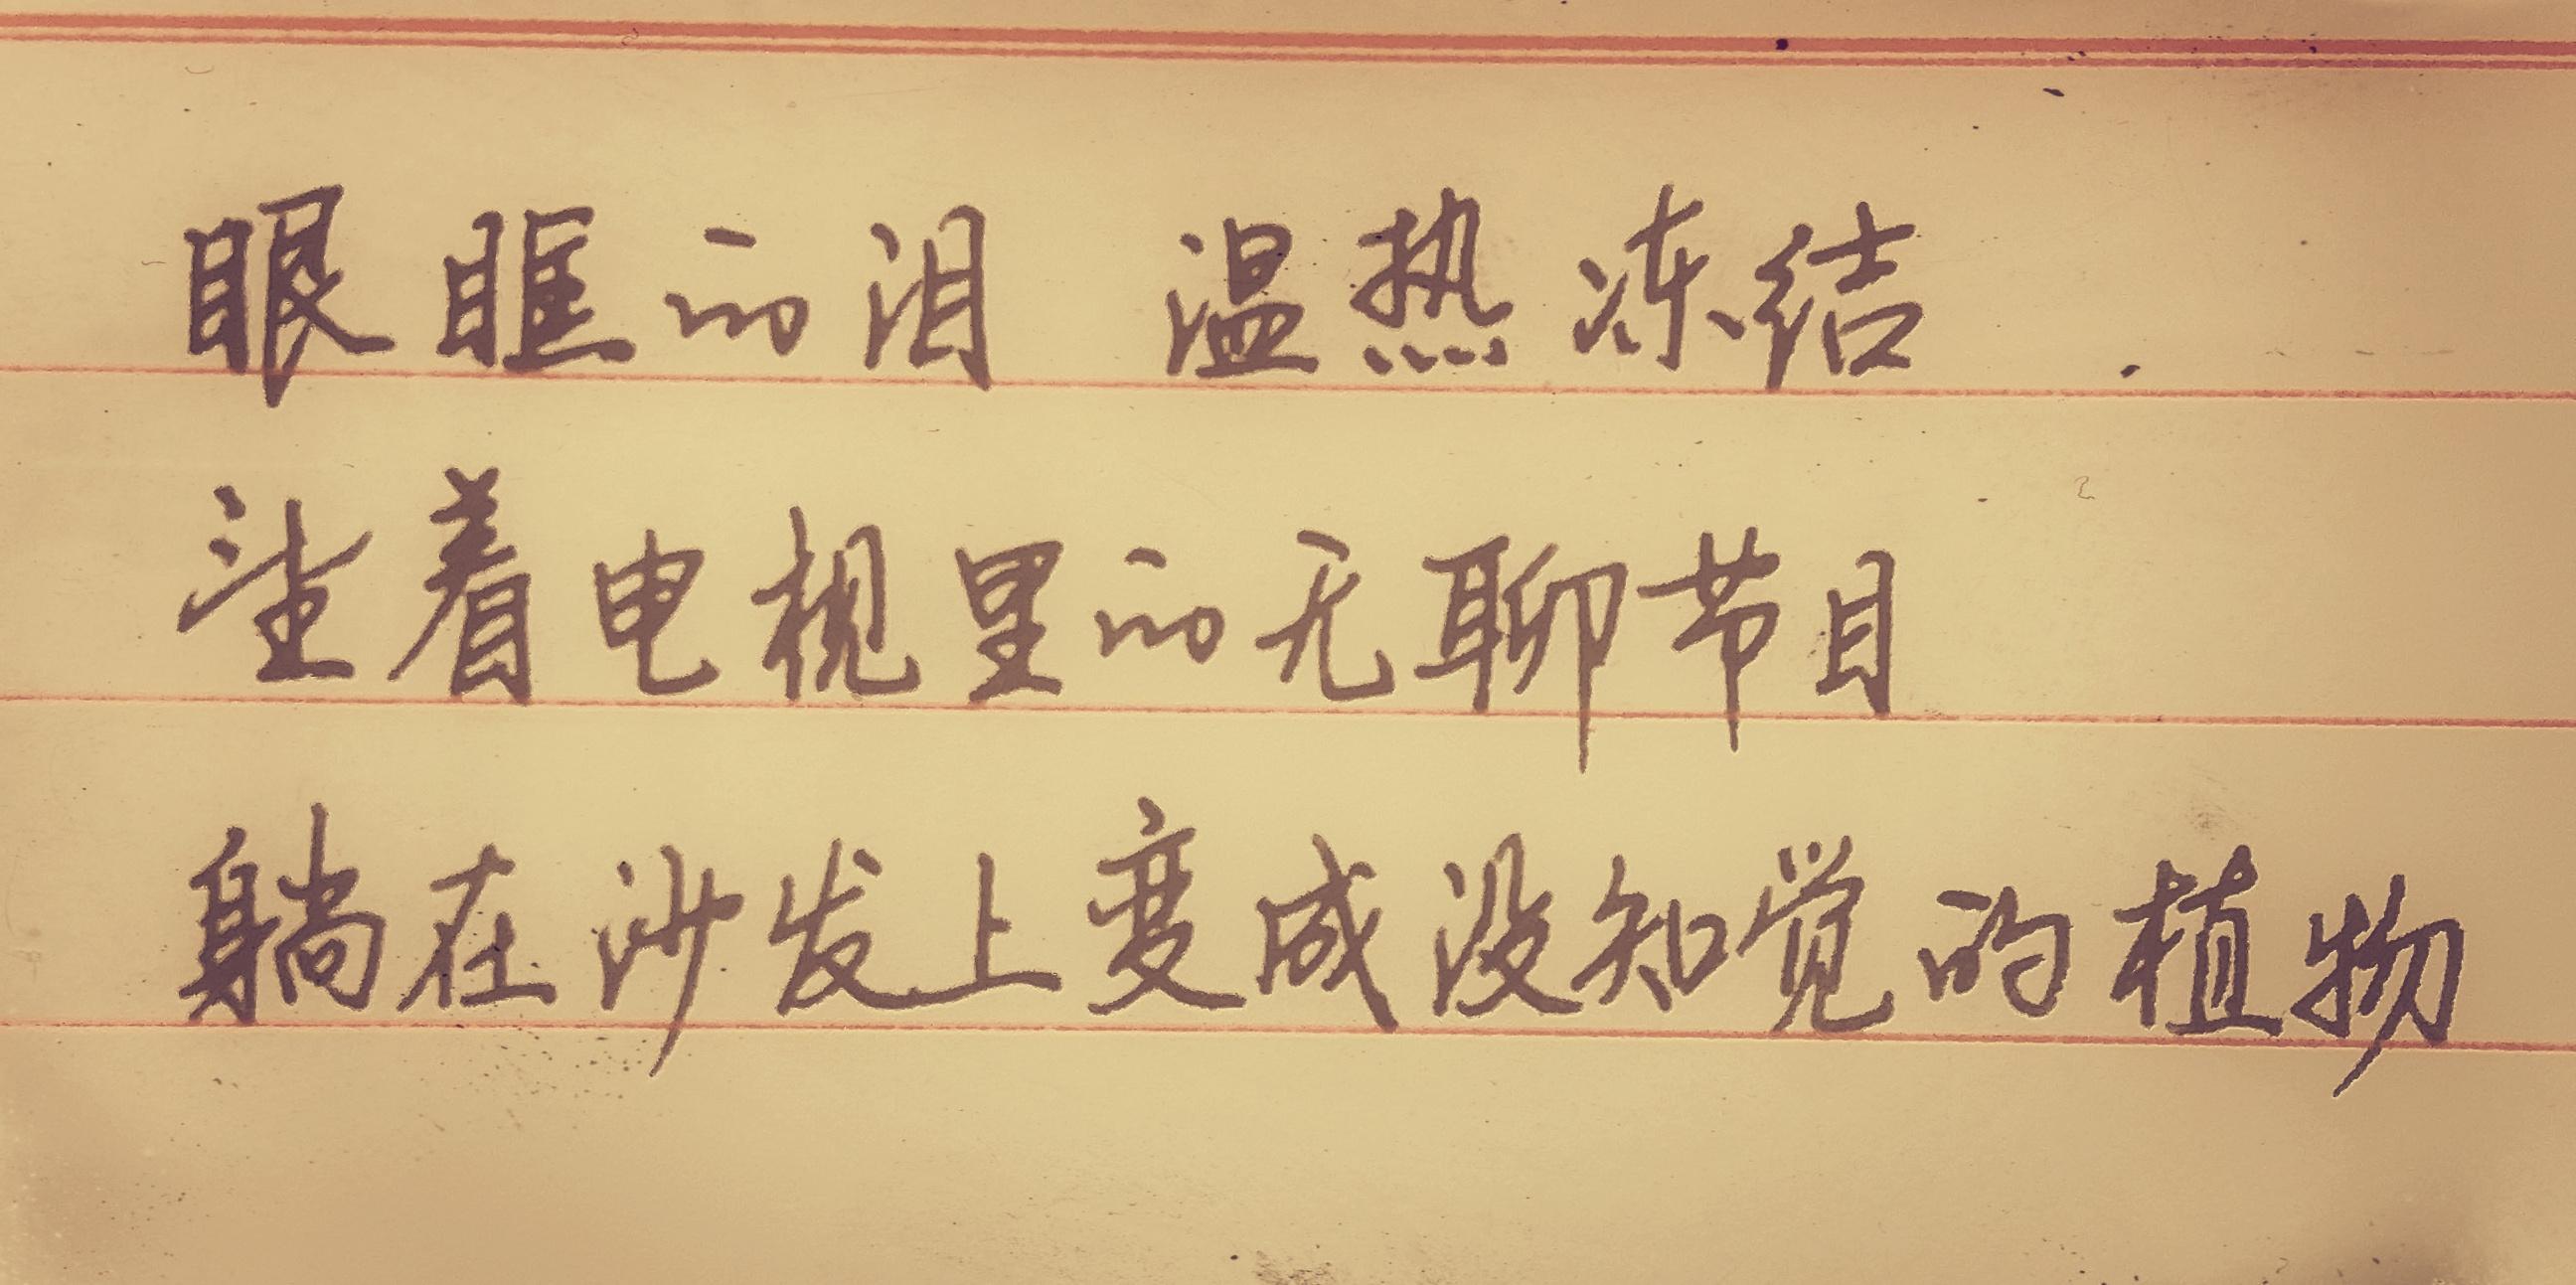 眼眶的泪 温热冻结
望着电视里的无聊节目
躺在沙发上变成没知觉的植物